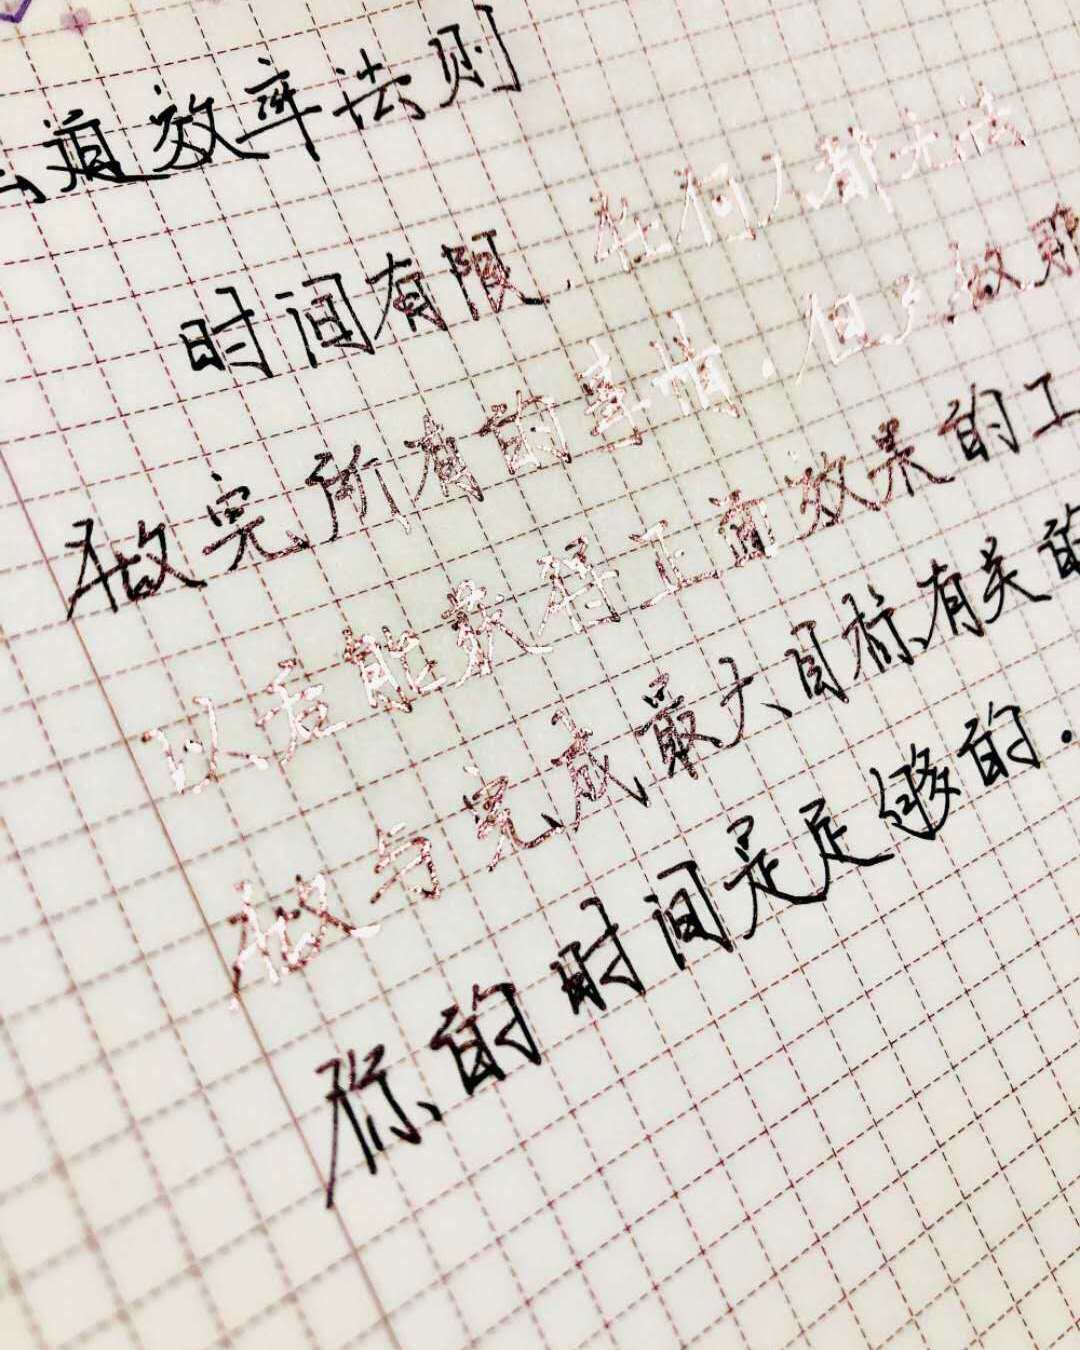 遍效率法则
时间有限，任何人都无法
做完所有的事情．但只做那
以后能获得正面效果的工
做与完成最大目标有关的
你的时间是足够的．